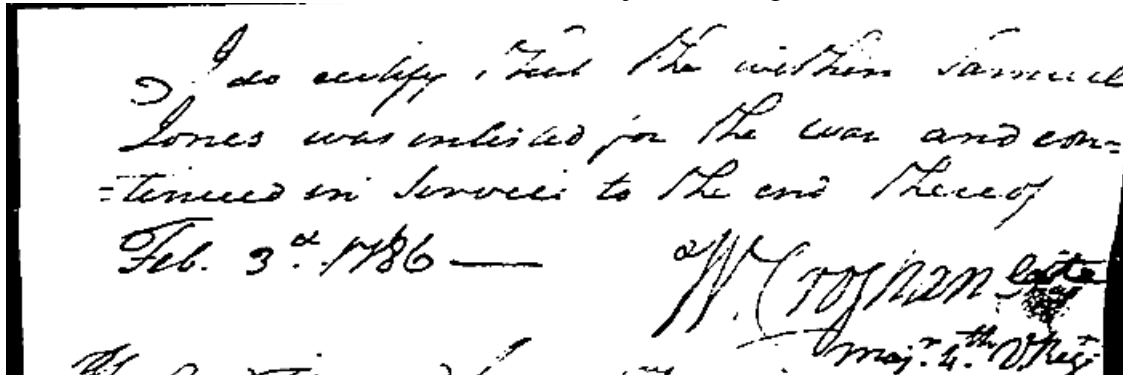 I do certify that the within Samuel
Jones was inlisted for the war and con=
=tinued in Service to the end thereof
Feb. 3d. 1786 —
W. Croghan late
Majr. 4th. V Regt